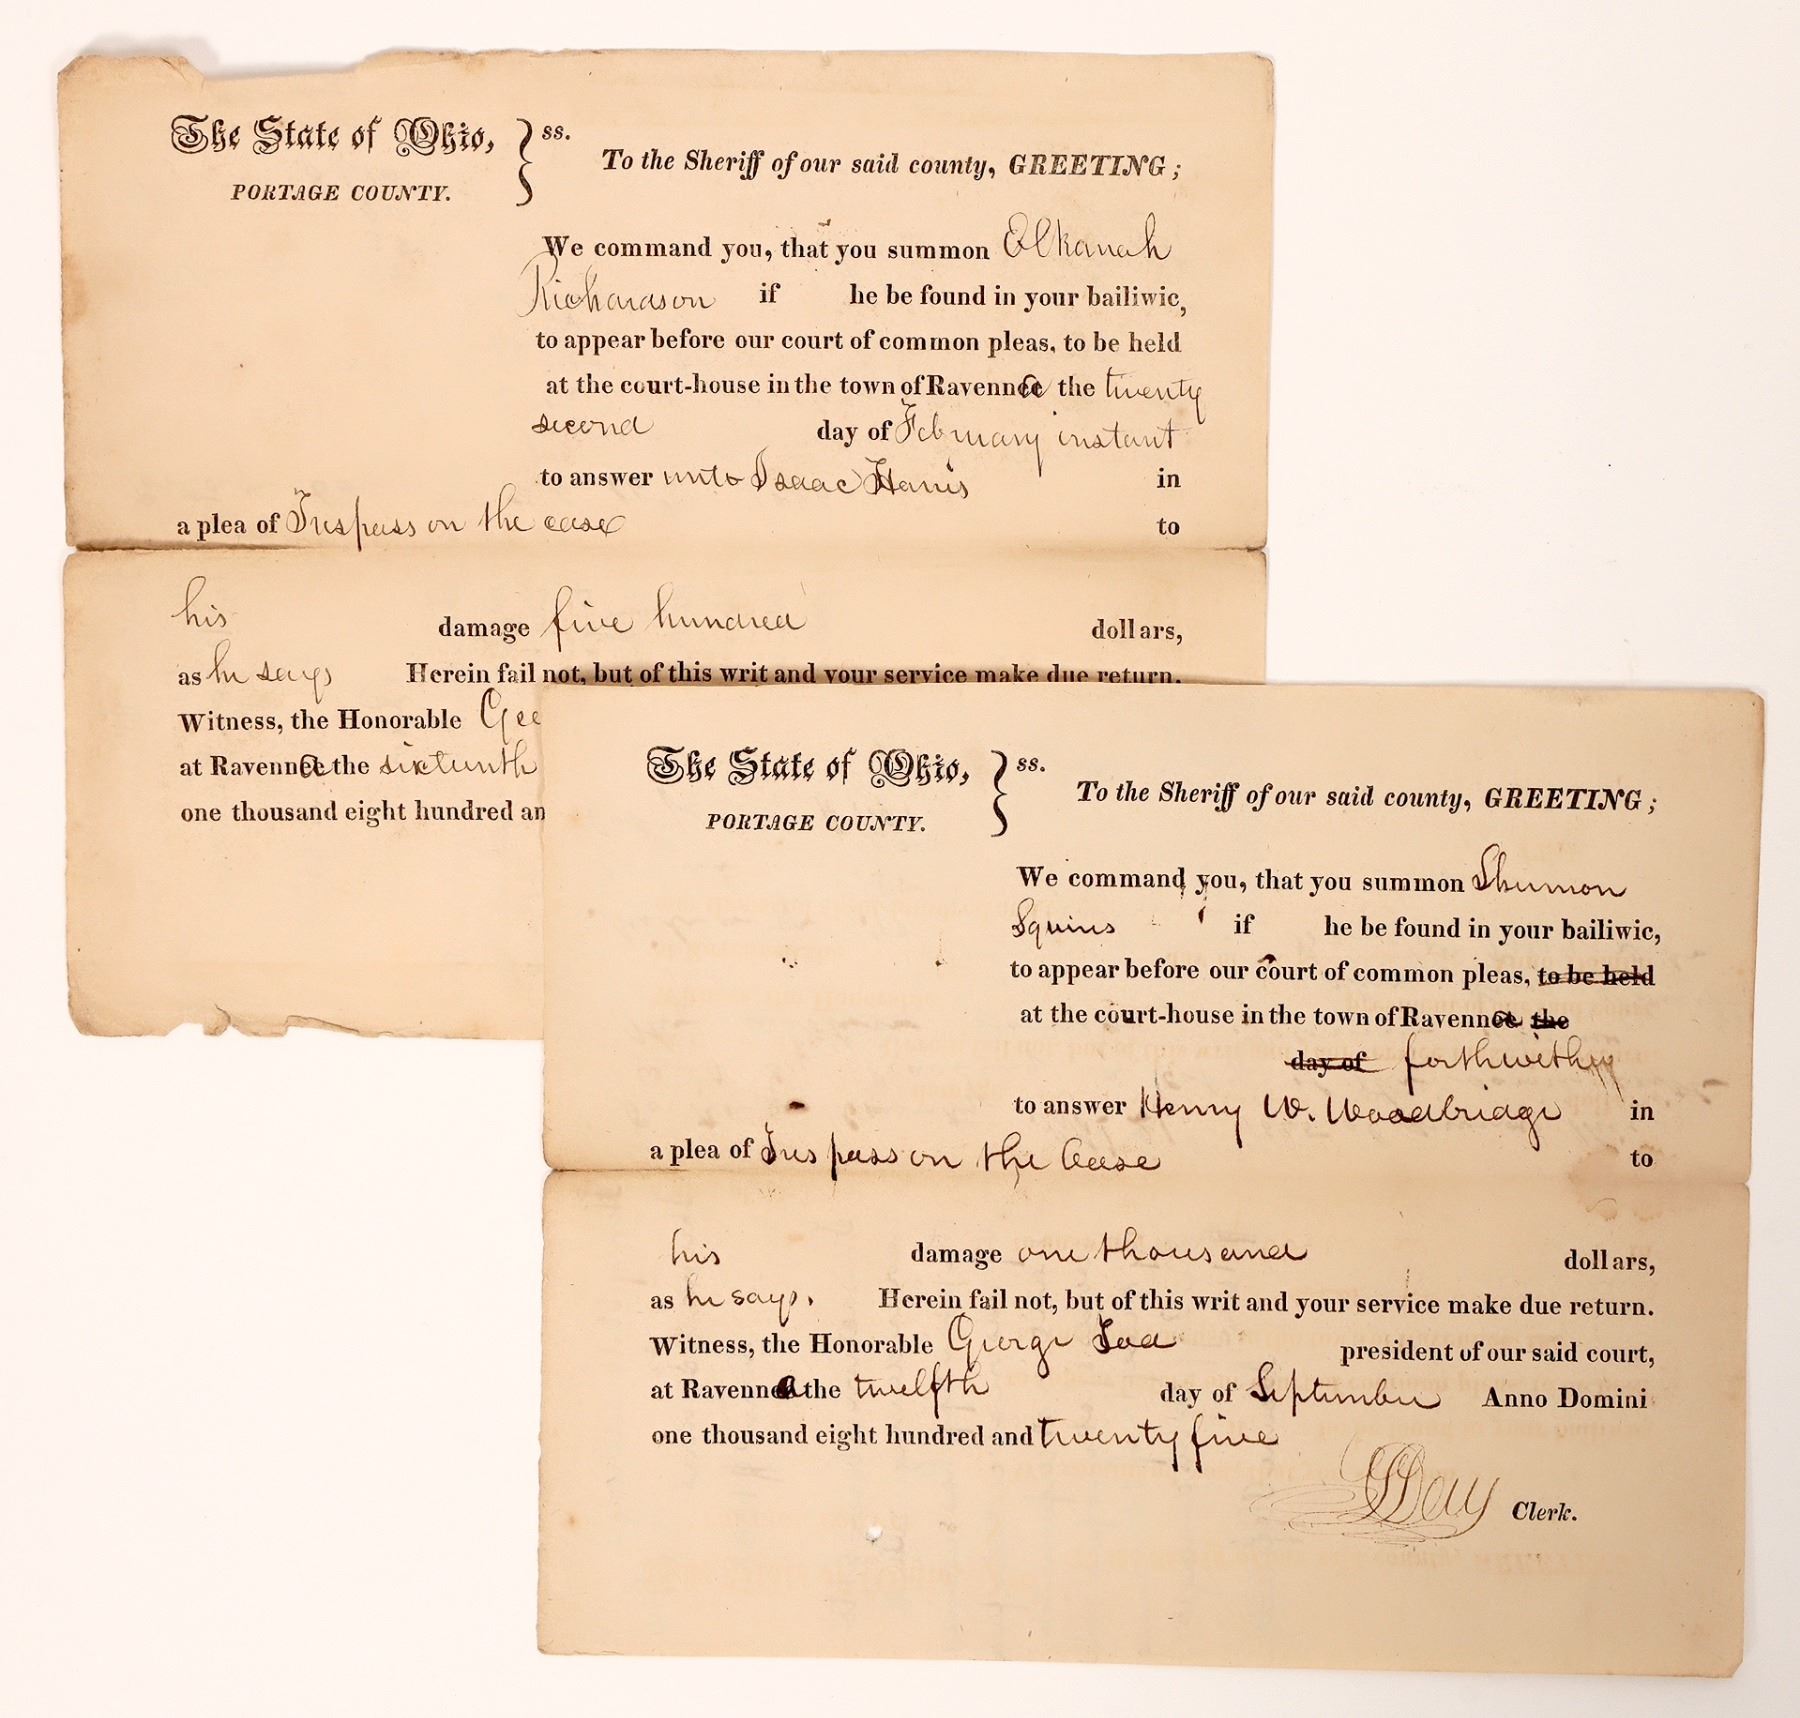 The State of Ohio, } ss.
PORTAGE COUNTY.
To the Sheriff of our said county, GREETING;
We command you, that you summon Elkanah
Richardson if he be found in your bailiwic,
to appear before our court of common pleas, to be held
at the court-house in the town of Ravenna the twenty
second day of February instant
to answer unto Isaac Harris in
a plea of Trespass on the case to
his damage five hundred dollars,
as he says Herein fail not, but of this writ and your service make due return.
Witness, the Honorable Geo
at Ravenna the sixteenth
one thousand eight hundred an
The State of Ohio, } ss.
PORTAGE COUNTY.
To the Sheriff of our said county, GREETING;
We command you, that you summon Shermon
Squires if he be found in your bailiwic,
to appear before our court of common pleas, to be held
at the court-house in the town of Ravenna the
day of forthwith
to answer Henry W. Woodbridge in
a plea of Trespass on the Case to
his damage one thousand dollars,
as he says. Herein fail not, but of this writ and your service make due return.
Witness, the Honorable George Tod president of our said court,
at Ravenna the twelfth day of September Anno Domini
one thousand eight hundred and twenty five
Day Clerk.